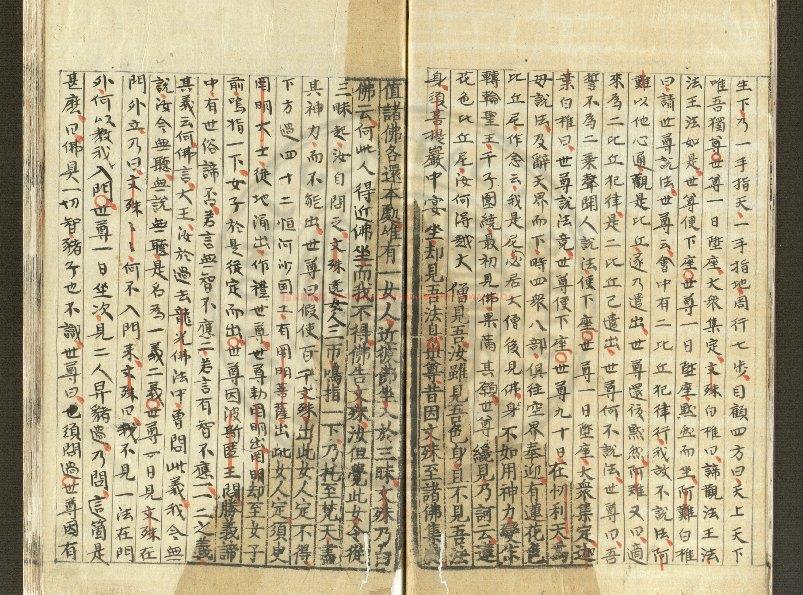 生下乃一手指天一手指地周行七步目顧四方曰天上天下
唯吾獨尊世尊一日陞座大衆集定文殊白椎曰諦觀法王法
法王法如是世尊便下座世尊一日陞座默然而坐阿難白椎
曰請世尊說法世尊云會中有二比丘犯律行我故不說法阿
難以他心通觀是比丘遂乃遣出世尊還復默然阿難又曰適
來為二比丘犯律是二比丘已遣出世尊何不說法世尊曰吾
誓不為二乘聲聞人說法便下座世尊一日陞座大衆集定迦
葉白椎曰世尊說法竟世尊便下座世尊九十日在忉利天為
母說法及辭天界而下時四衆八部俱往空界奉迎有蓮花色
比丘尼作念云我是尼必居大僧後見佛不如用神力變作
轉輪聖王千子圍繞最初見佛果滿其願世尊纔見乃訶云蓮
花色比丘尼汝何得越大僧見吾汝雖見吾色身且不見吾法
身須菩提巖中宴坐却見吾法身世尊昔因文殊至諸佛集處
值諸佛各還本處唯有一女人近彼佛坐入於三昧文殊乃白
佛云何此人得近佛坐而我不得佛告文殊汝但覺此女令從
三昧起汝自問之文殊遶女人三帀鳴指一下乃托至梵天盡
其神力而不能出世尊曰假使百千文殊出此女人定不得
下方過四十二恒河沙國土有罔明菩薩出此女人定須臾
罔明大士從地涌出作禮世尊世尊勑罔明出罔明却至女子
前鳴指一下女子於是從定而出世尊因波斯匿王問勝義諦
中有世俗諦否若言無智不應二若言有智不應一一二之義
其義云何佛言大王汝於過去龍光佛法中曾問此義我今無
說汝今無聽無說無聽是名為一義二義世尊一日見文殊在
門外立乃曰文殊文殊何不入門來文殊曰我不見一法在門
外何以教我入門世尊一日坐次見二人舁豬過乃問言箇是
甚麽曰佛具一切智豬子也不識世尊曰也須問過世尊因有